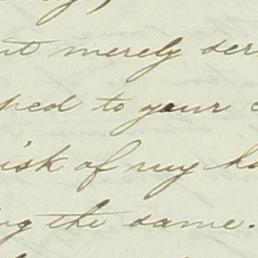 merely ser
ped to your
isk of my ha
ng the same.